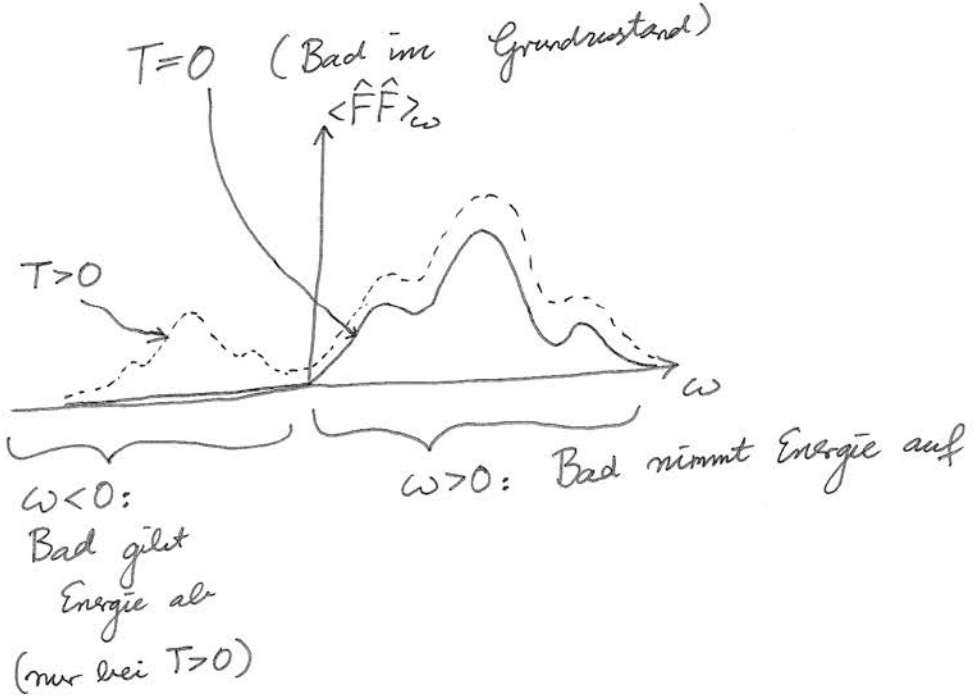 T=0 (Bad im Grundzustand)
<F̂F̂>ω
T>0
ω
ω<0:
Bad gibt
Energie ab
(nur bei T>0)
ω>0: Bad nimmt Energie auf